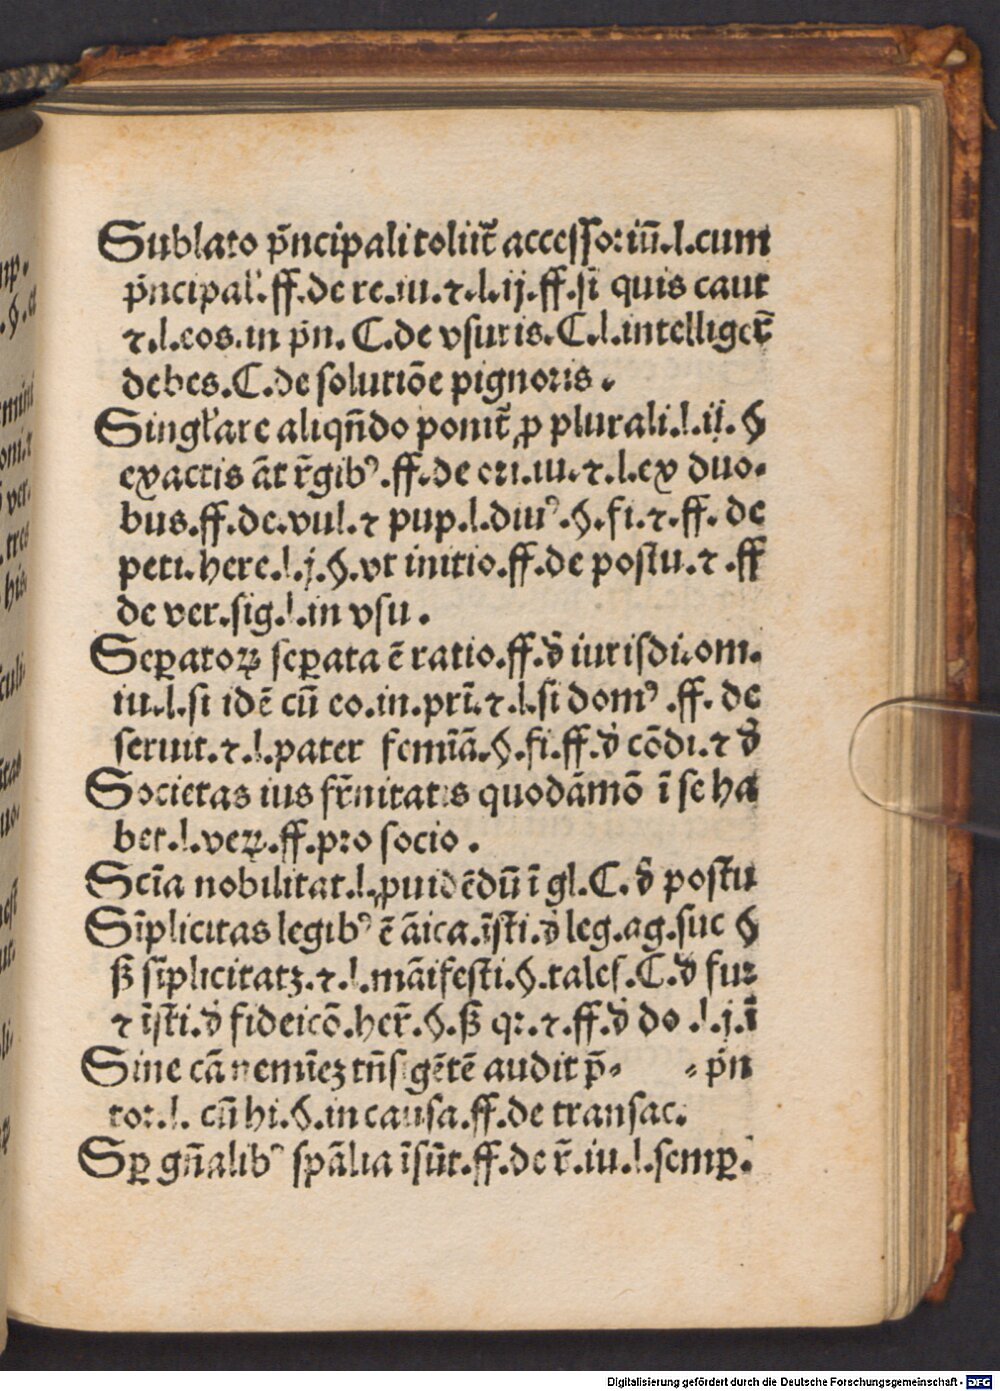 Sublato p̄ncipali toliit̄ accessoriū.l.cum
p̄ncipal'.ff.de re.iu.⁊.l.ij.ff.si quis caut
⁊.l.eos.in pn̄. C.de vsuris.C.l.intelliget̄
debes.C.de solutiōe pignoris.
Singl'are aliqn̄do ponit̄ ꝓ plurali.l.ij.§
exactis āt r̄gibꝰ.ff.de ori.iu.⁊.l.ex duo-
bus.ff.de.vul.⁊ pup.l.diuꝰ.§.fi.⁊.ff. de
peti.here.l.j.§.vt initio.ff.de postu.⁊.ff
de ver.sig.l.in vsu.
Seꝑatoꝝ seꝑata ē ratio.ff.d̄ iurisdi.om.
iu.l.si idē cū eo.in.pri.⁊.l.si domꝰ.ff. de
seruit.⁊.l.pater femīā.§.fi.ff.d̄ cōdi.⁊ d̄
Societas ius fr̄nitatis quodāmō ī se ha
bet.l.veꝝ.ff.pro socio.
Scīa nobilitat.l.ꝓuidēdū ī gl.C. d̄ postu
Sīplicitas legibꝰ ē āica.īsti.d̄ leg.ag.suc §
sꝫ sīplicitatꝫ.⁊.l.māifesti.§.tales.C.d̄ fur
⁊ īsti.d̄ fideicō.her̄.§.sꝫ qr.⁊.ff.d̄ do.l.j.ī
Sine cā nemīeꝫ tn̄sigētē audit p̄- - pn̄
tor.l. cū hi.§.in causa.ff.de transac.
Sꝑ gn̄alibꝰ spālia īsūt.ff.de r̄.iu.l.semꝑ.
Digitalisierung gefördert durch die Deutsche Forschungsgemeinschaft - DFG